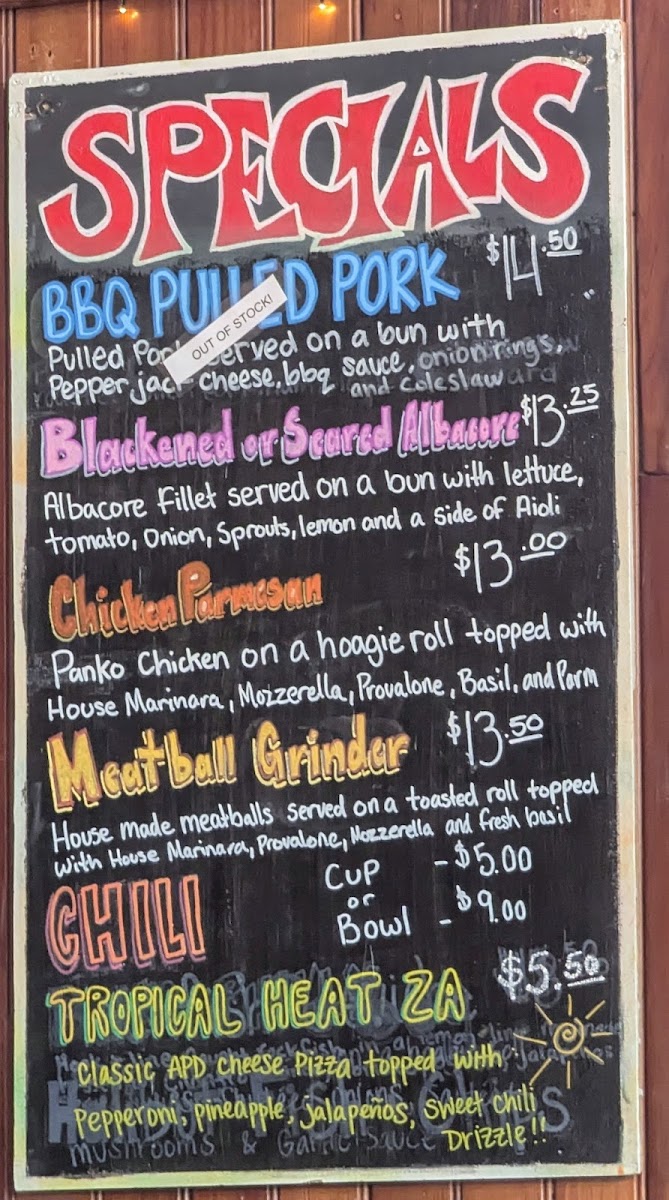 SPECIALS
BBQ PULLED PORK $14.50
OUT OF STOCK!
Pulled Pork served on a bun with
Pepperjack cheese, bbq sauce, onion rings,
and coleslaw
Blackened or Seared Albacore $13.25
Albacore Fillet served on a bun with lettuce,
tomato, Onion, Sprouts, lemon and a side of Aioli
Chicken Parmesan $13.00
Panko Chicken on a hoagie roll topped with
House Marinara, Mozzerella, Provalone, Basil, and Parm
Meatball Grinder $13.50
House made meatballs served on a toasted roll topped
with House Marinara, Provalone, Mozzerella and fresh basil
CHILI
Cup - $5.00
or
Bowl - $9.00
TROPICAL HEAT ZA $5.50
Classic APD Cheese Pizza topped with
Pepperoni, pineapple, jalapeños, sweet chili
Drizzle!!
mushrooms & Garlic Sauce